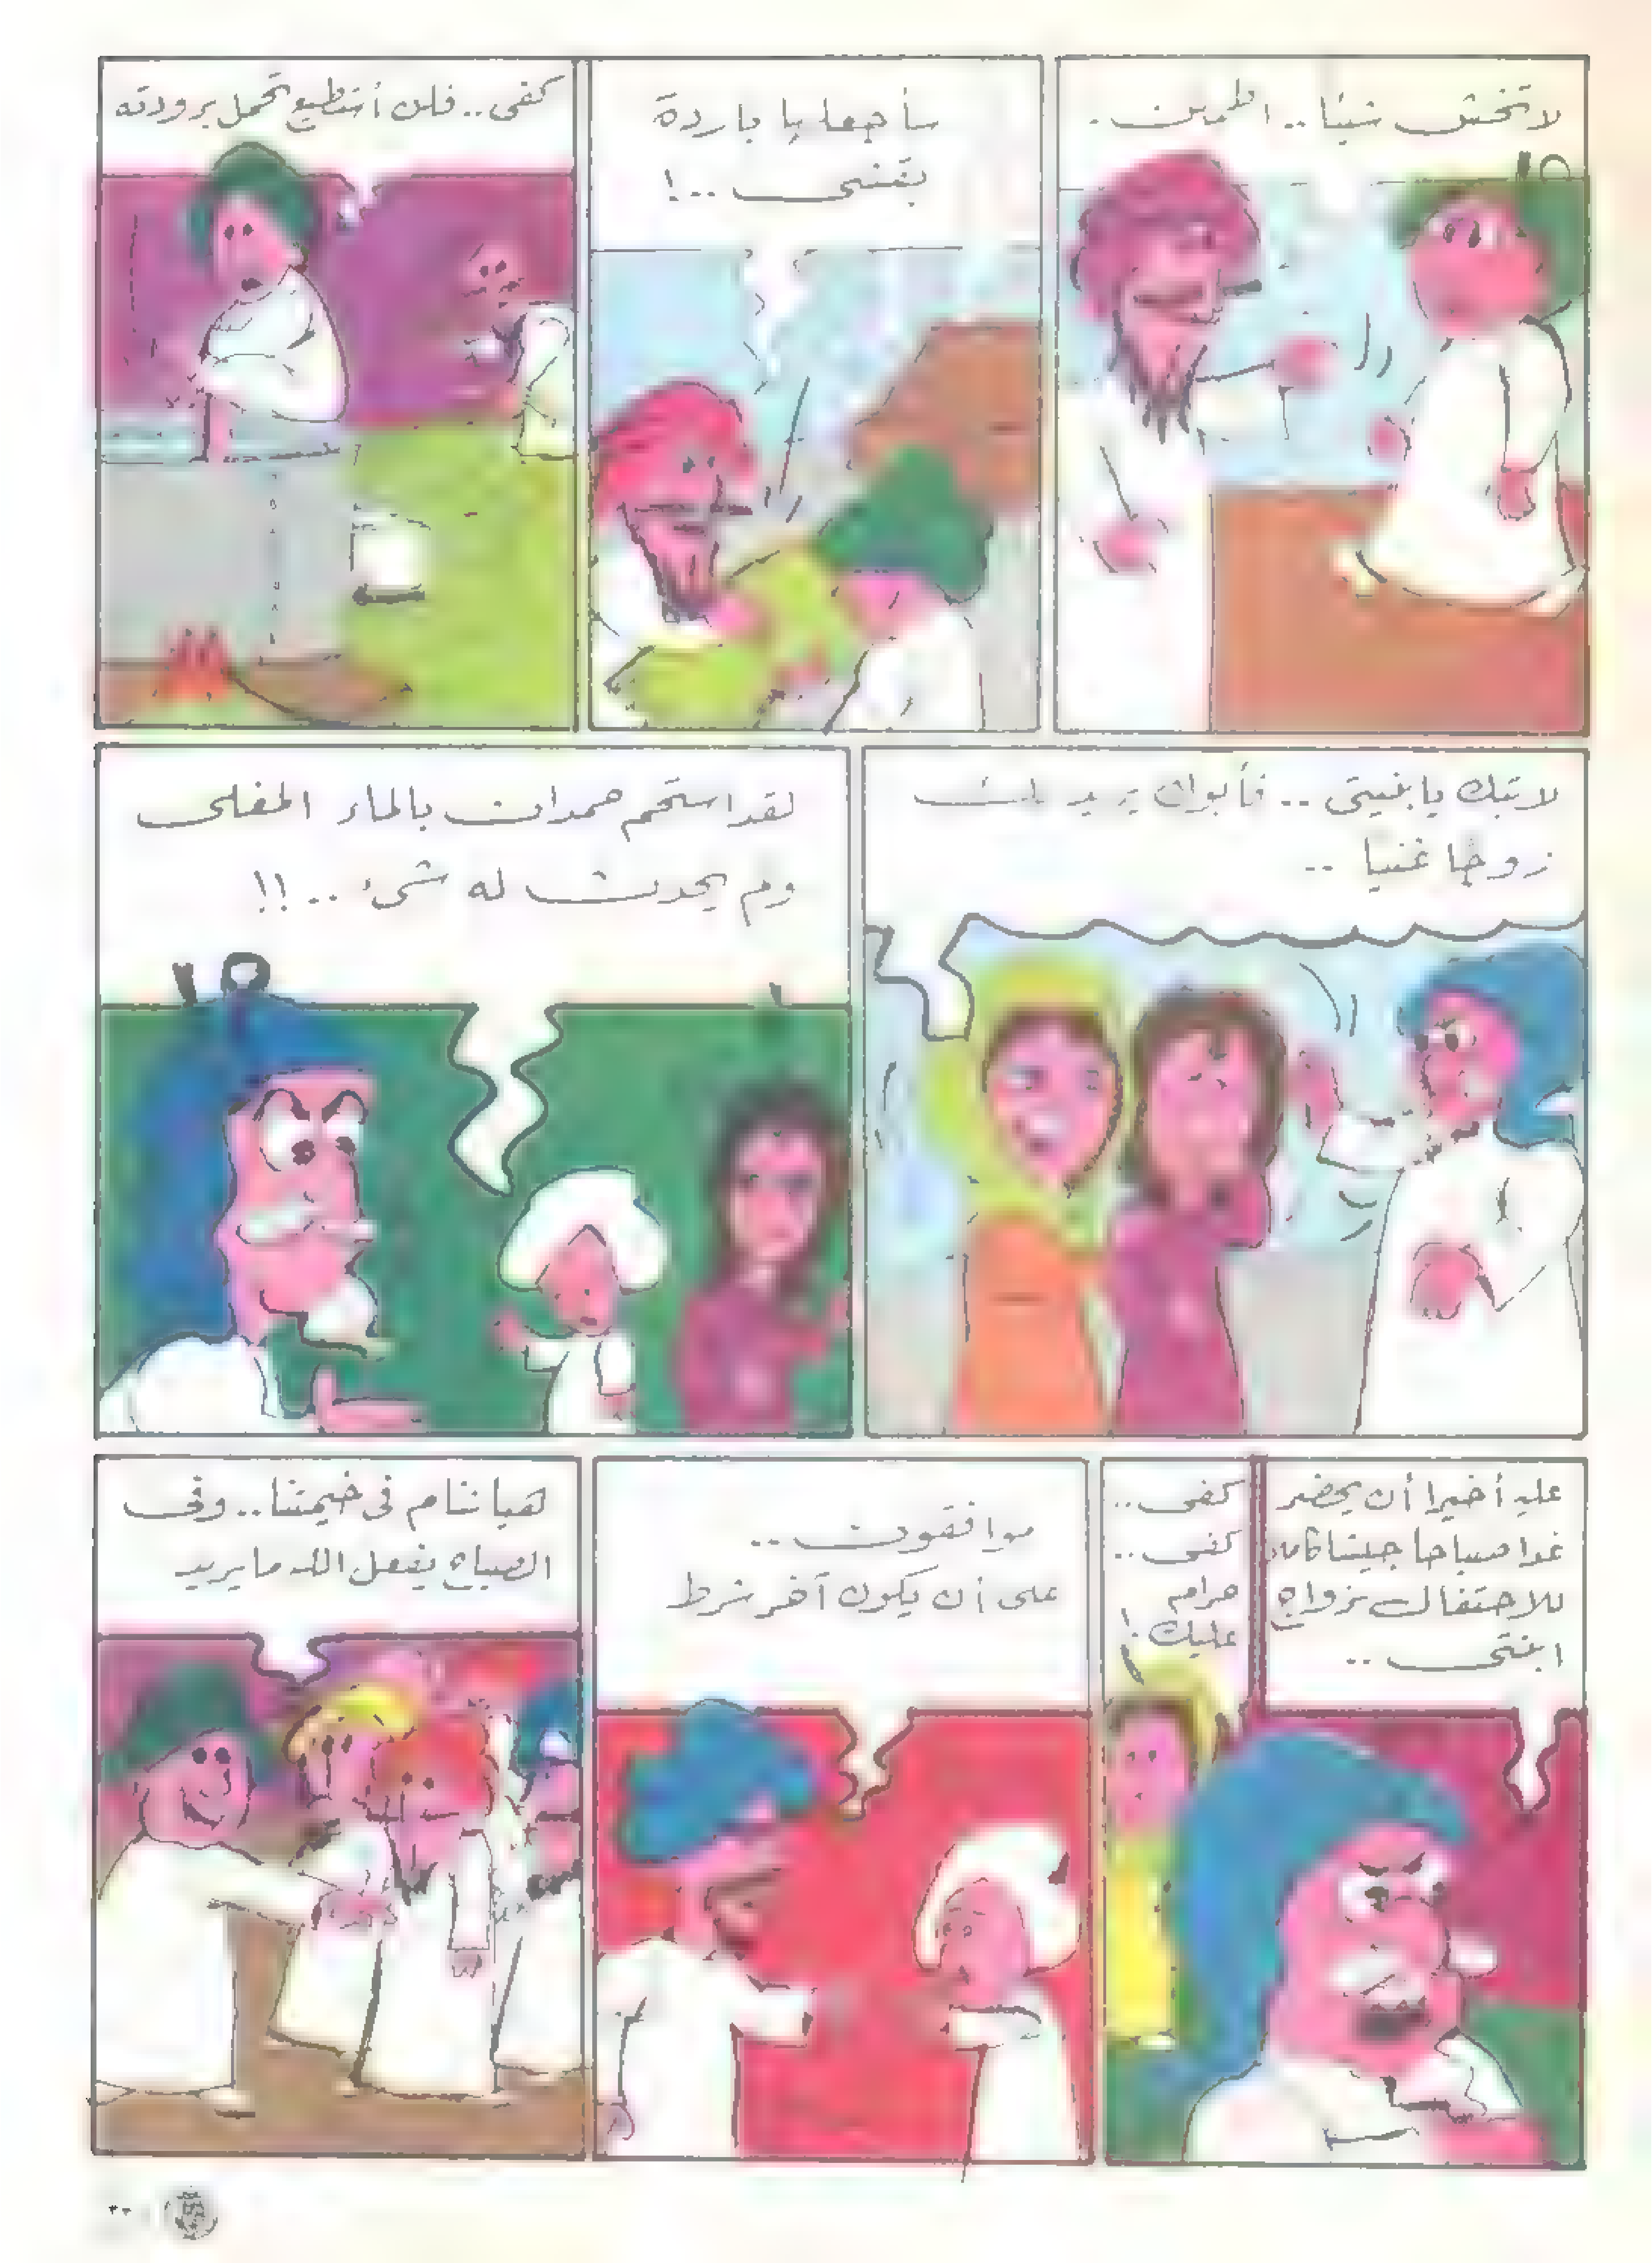 لا تخش شيئا .. اطمئن .
سأجعلها باردة
بنفسى .. !
كفى .. فلن أستطيع تحمل برودته
لا تبك يا بنيتى .. فأبوك يريد لك
زوجا غنيا ..
لقد استحم حمدان بالماء المغلى
ولم يحدث له شىء .. !!
عليه أخيرا أن يحضر
غدا صباحا جيشا كاملا
للاحتفال بزواج
ابنتى ..
كفى ..
كفى ..
حرام
عليك !
موافقون ..
على أن يكون آخر شرط
هيا ننام فى خيمتنا .. وفى
الصباح يفعل الله ما يريد
٣٠